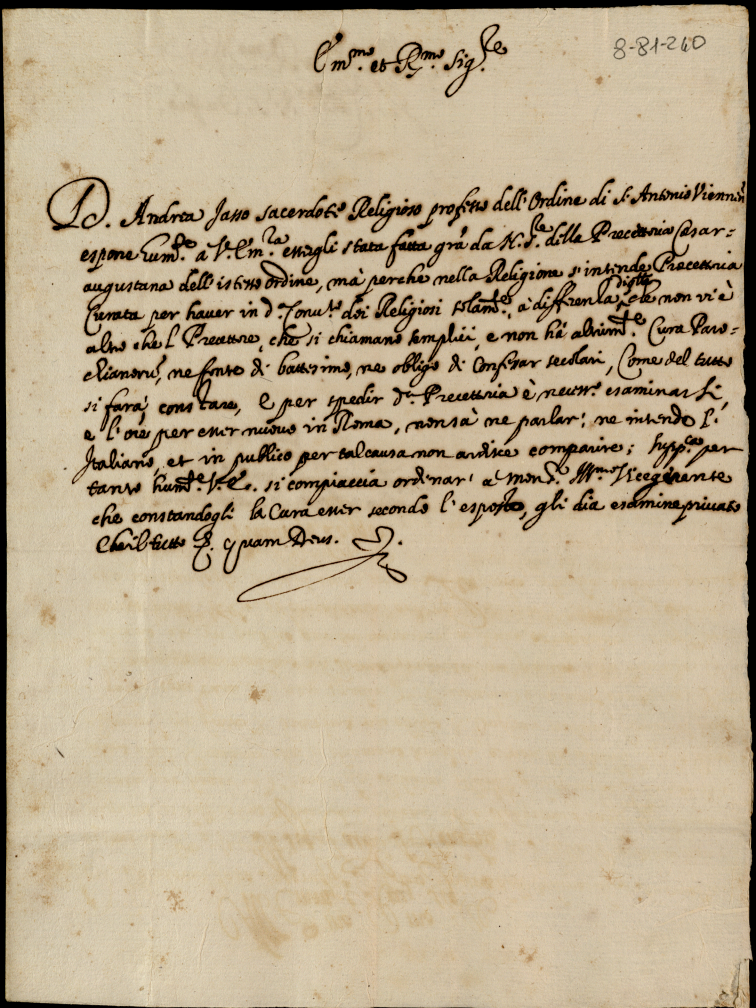 8-81-240
Em.mo et R.mo Sig.re
D. Andrea Jasso sacerdote Religioso professo dell'Ordine di S. Antonio Viennen
espone hum.te a V. Em.za essergli stata fatta gra da N. S.re della Precettoria Cesar=
augustana dell'istesso ordine, mà perche nella Religione si intende Precettoria
Curata per haver in d. Conv.to dei Religiosi solam.te, a differenza di q.lle che non vi è
altro che l Precettore, che si chiamano semplici, e non hà altrim.te Cura Paro=
chianorũ, ne fonte di battesimo, ne obligo di Confesar secolari, Come del tutto
si farà constare, e per spedir d.a Precettoria è necess.o esaminarsi,
e l'o.re per esser nuovo in Roma, non sà ne parlar, ne intende l'
Italiano, et in publico per tal causa non ardisce comparire; supp.ca per
tanto hum.te V. E. si compiaccia ordinar à Mons. Ill.mo Vicegerente
che constandogli la Cura esser secondo l'esposto, gli dia esamine privato
Che il tutto &. quam Deus. &.